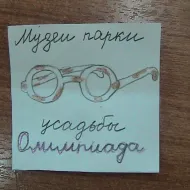 Музеи парки
усадьбы
Олимпиада